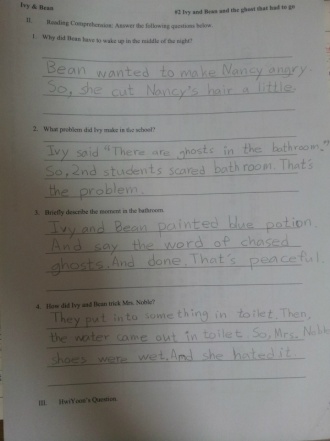 Ivy & Bean
#2 Ivy and Bean and the ghost that had to go
II. Reading Comprehension: Answer the following questions below.
1. Why did Bean have to wake up in the middle of the night?
Bean wanted to make Nancy angry.
So, she cut Nancy's hair a little.
2. What problem did Ivy make in the school?
Ivy said "There are ghosts in the bathroom."
So, 2nd students scared bathroom. That's
the problem.
3. Briefly describe the moment in the bathroom.
Ivy and Bean painted blue potion.
And say the word of chased
ghosts. And done. That's peaceful.
4. How did Ivy and Bean trick Mrs. Noble?
They put into something in toilet. Then,
the water came out in toilet. So, Mrs. Noble
shoes were wet. And she hated it.
III. Question.